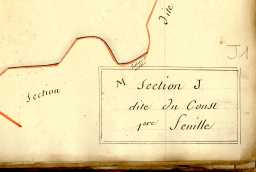 dite
J1
Section
M Section J
dite du Coust
1ere feuille